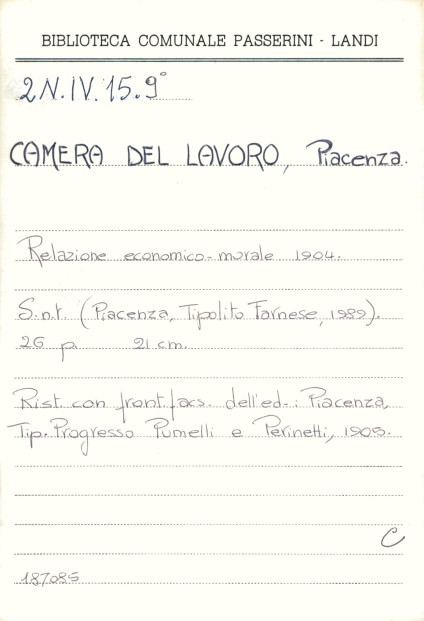 BIBLIOTECA COMUNALE PASSERINI - LANDI
2N.IV.15.9°
CAMERA DEL LAVORO, Piacenza.
Relazione economico-morale 1904.
S.n.t. (Piacenza, Tipolito Farnese, 1989).
26 p. 21 cm.
Rist. con front. facs. dell'ed.: Piacenza,
Tip. Progresso Pumelli e Perinetti, 1905.
C
187085